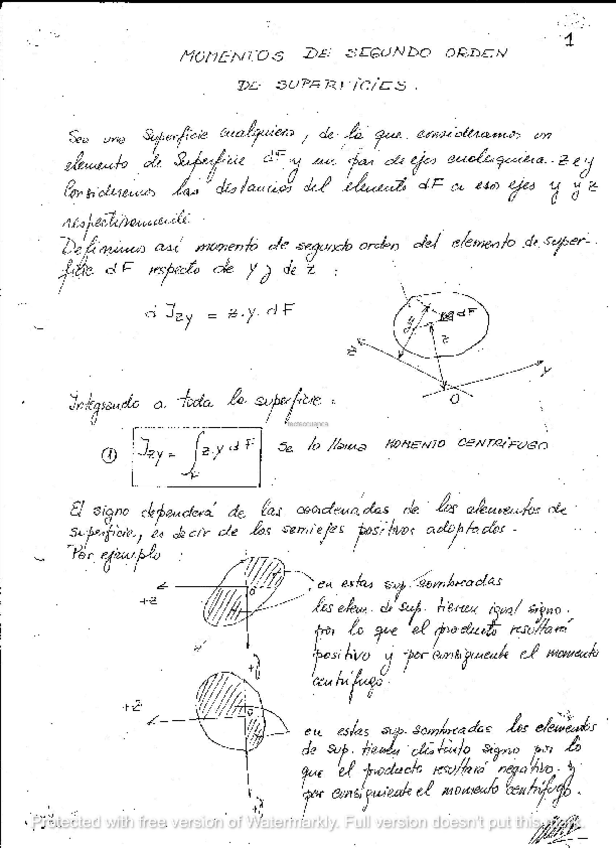 1
MOMENTOS DE SEGUNDO ORDEN
DE SUPERFICIES.
Sea una Superficie cualquiera, de la que consideramos un
elemento de Superficie dF y un par de ejes cualesquiera z e y
Consideremos las distancias del elemento dF a esos ejes y y z
respectivamente.
Definimos así momento de segundo orden del elemento de super-
ficie dF respecto de y y de z :
d Jzy = z.y.dF
y
dF
z
z
y
O
Integrando a toda la superficie :
① Jzy = ∫F z.y dF Se lo llama MOMENTO CENTRIFUGO
El signo dependerá de las coordenadas de los elementos de
superficie, es decir de los semiejes positivos adoptados.
Por ejemplo :
+z
O
+y
en estas sup. sombreadas
los elem. de sup. tienen igual signo.
por lo que el producto resultará
positivo y por consiguiente el momento
centrífugo.
+z
O
+y
en estas sup. sombreadas los elementos
de sup. tienen distinto signo por lo
que el producto resultará negativo. y
por consiguiente el momento centrífugo.
Protected with free version of Watermarkly. Full version doesn't put this mark.